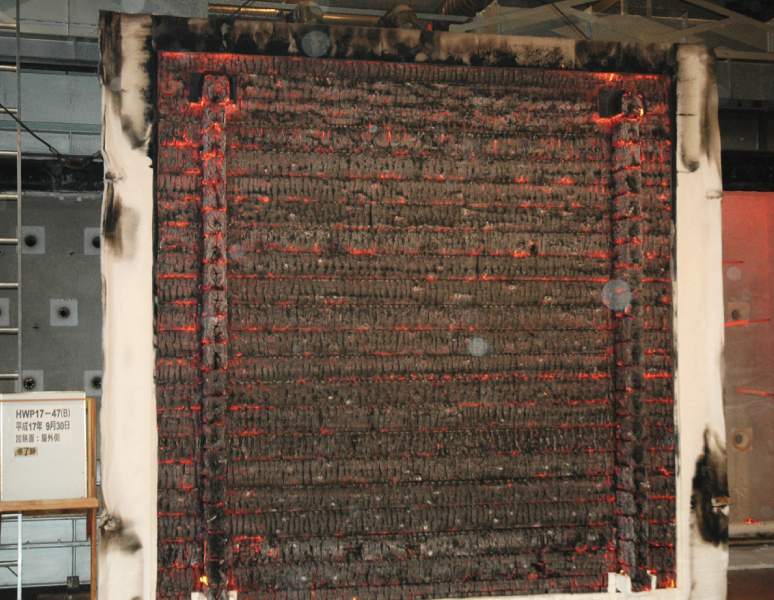 HWP17-47(B)
平成17年 9月30日
加熱面:屋外側
終了時